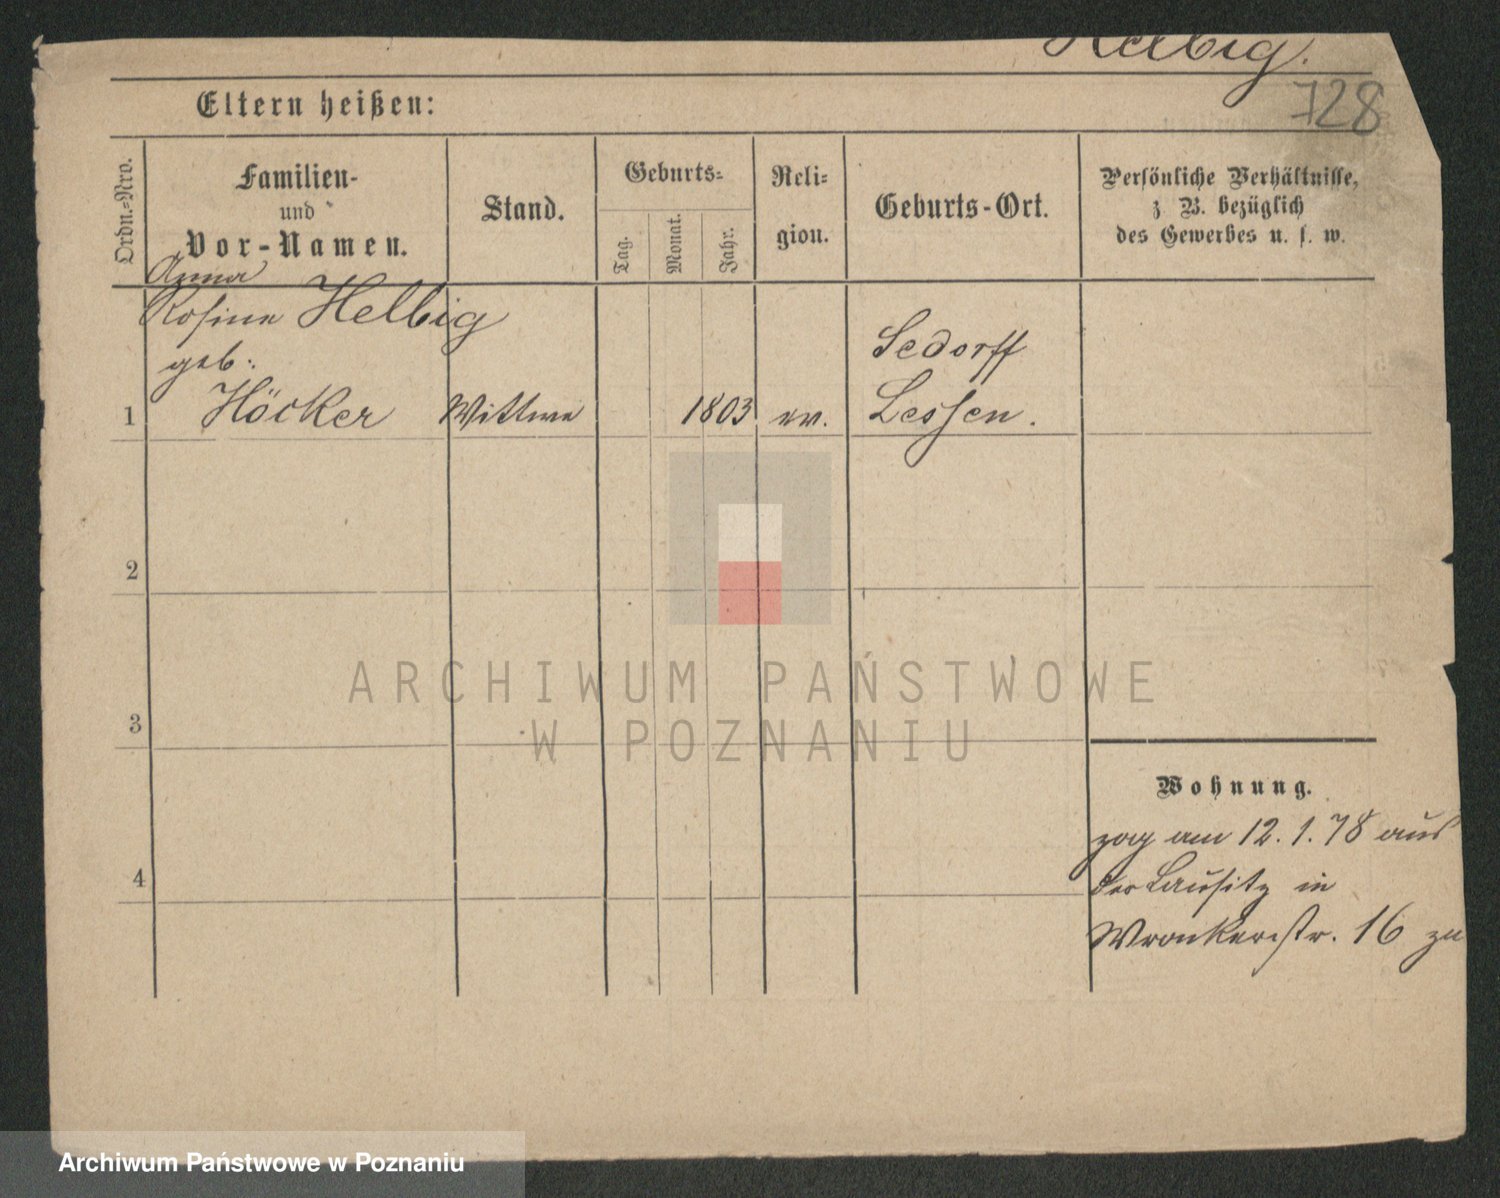 Helbig.
728
Eltern heißen:
Ordn.-Nro.
Familien-
und
Vor-Namen.
Stand.
Geburts-
Tag.
Monat.
Jahr.
Reli-
gion.
Geburts-Ort.
Persönliche Verhältnisse,
z B. bezüglich
des Gewerbes u. s. w.
Anna
Rosine Helbig
geb.
1 Höcker Wittwe 1803 ev. Sedorff
Lessen.
2
3
4
Wohnung.
zog am 12.1.78 aus
der Lausitz in
Wronkerstr. 16 zu
ARCHIWUM PAŃSTWOWE
W POZNANIU
Archiwum Państwowe w Poznaniu